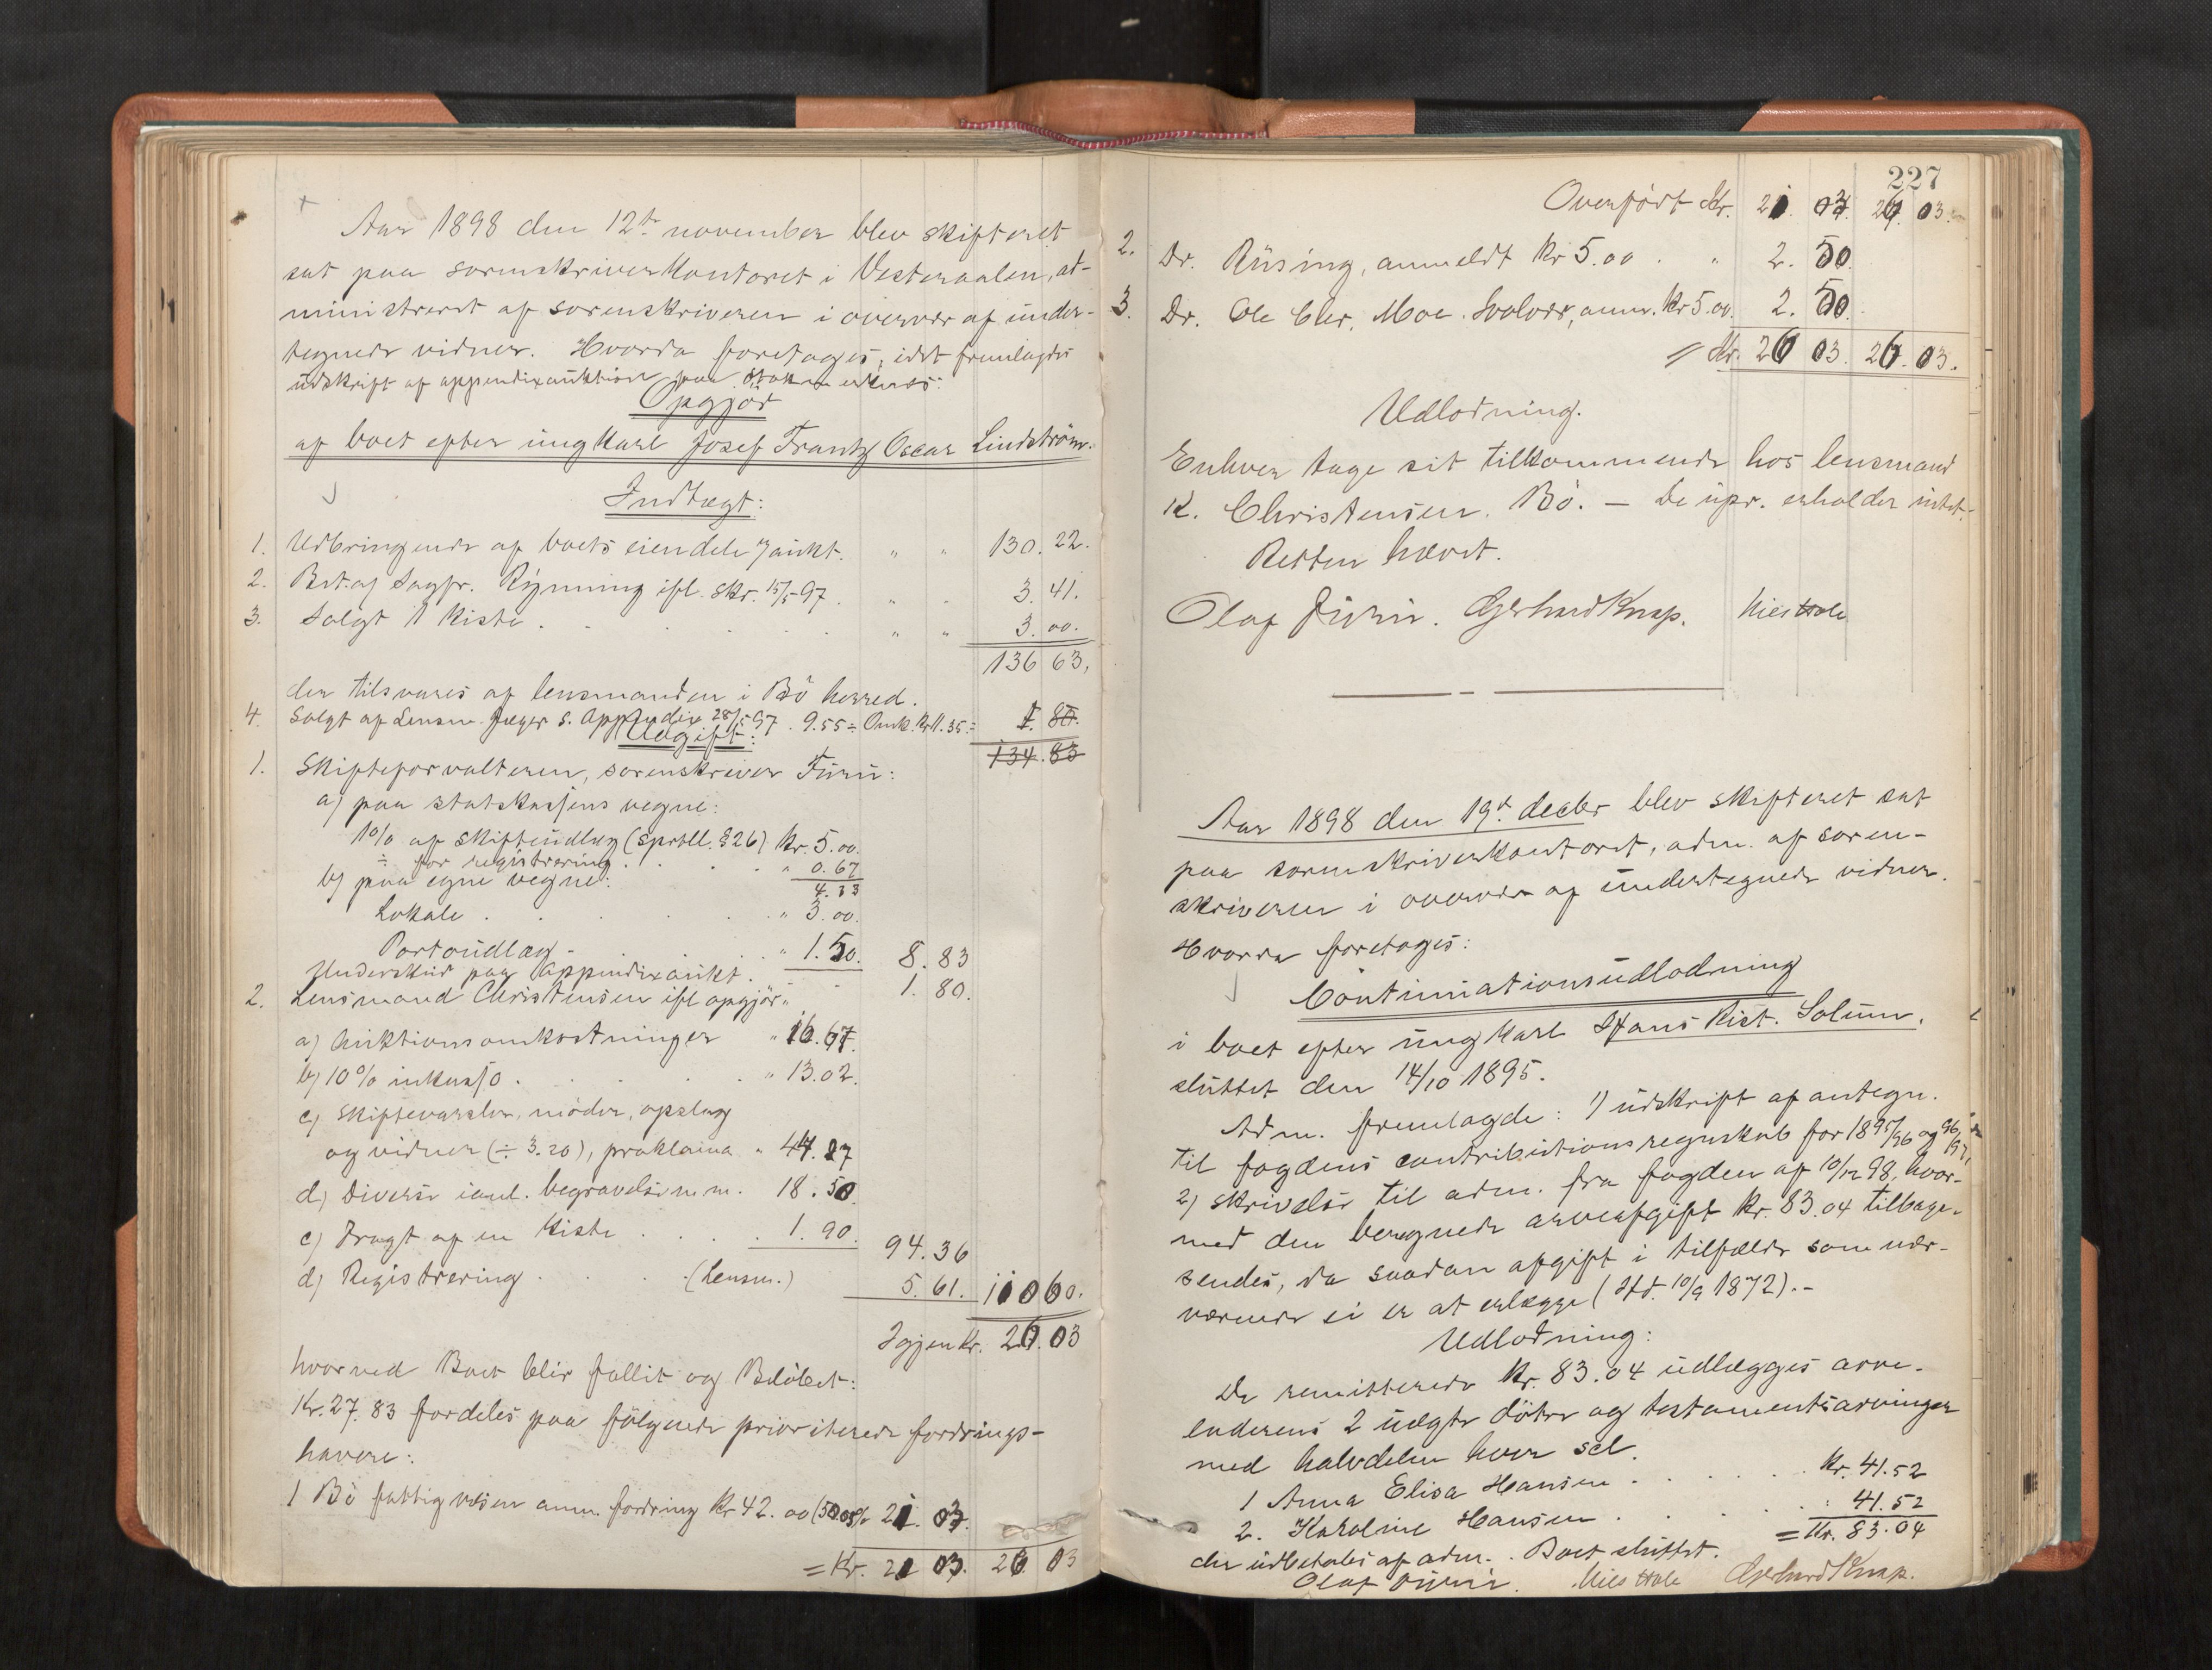 Aar 1898 den 12te november blev skifteret
sat paa sorenskriverkontoret i Vesteraalen, ad-
ministreret af sorenskriveren i overvær af under-
tegnede vidner. Hvorda foretoges, idet fremlagdes
udskrift af appendixauktion paa
Opgjør
af boet efter ungkarl Josef Frantz Oscar Lindström.
Indtægt:
1. Udbringende af boets eiendele i aukt. " " 130.22.
2. Bet. af Sagfr. Rynning ifl. skr. 15/5 97. " " 3.41.
3. Solgt 1 kiste . . . . . " " 3.00.
136 63.
der tilsvares af lensmanden i Bø herred.
4. Solgt af Lensm. Jæger s. Appendix 28/5 97. 9.55 ÷ Omk. Kr 11.35 = 1.80.
Udgift:
134.83
1. Skifteforvalteren, sorenskriver Furu:
a) paa statskassens vegne:
1% af skifteudlæg (sportll. §26) Kr. 5.00.
÷ for registrering . . . " 0.67
4.33
b) paa egne vegne:
Lokale . . . . . " 3.00.
Portoudlæg . . . . " 1.50. 8.83
Underskud paa Appendixaukt. . . 1.80.
2. Lensmand Christensen ifl opgjør "
a) Auktionsomkostninger " 16.67.
b) 10% inkasso . . . . " 13.02.
c) Skiftevarsler, møder, opslag
og vidner (÷ 3.20), proklama " 44.27
d) Diverse incl. begravelse m.m. 18.50.
e) Fragt af en kiste . . . . 1.90. 94.36
d) Registrering . . . (Lensm.) 5.61. 110 60.
Igjen Kr. 26.03
hvorved Boet blir fallit og Beløbet:
Kr. 27.83 fordeles paa følgende prioriterede fordrings-
havere:
1 Bø fattigvæsen anm. fordring Kr 42.00 21.03.
= Kr. 21 03. 26 03
227
Overført Kr. 21. 03. 26 03.
2. Dr. Rüsing, anmeldt Kr 5.00 . " 2. 50.
3. Dr. Ole Chr. Moe. Svolvær, anm. Kr 5.00. 2. 50.
= Kr. 26 03. 26.03.
Udlodning.
Enhver tage sit tilkommende hos lensmand
K. Christensen. Bø. — De upr. erholder intet.
Retten hævet.
Olaf Furu. Gerhard Knap. Nils Hole
Aar 1898 den 19d decbr blev skifteret sat
paa sorenskriverkontoret, adm. af soren-
skriveren i overvær af undertegnede vidner.
Hvorda foretoges:
Continuationsudlodning
i boet efter ungkarl Hans Kist. Solum.
sluttet den 14/10 1895.
Adm. fremlagde: 1) udskrift af antegn.
til fogdens contributionsregnskab for 1895/96 og 96/97,
2) skrivelse til adm. fra fogden af 10/12 98, hvor-
med den beregnede arveafgift Kr. 83.04 tilbage-
sendes, da saadan afgift i tilfælde som nær-
værende ei er at erlægge (Hd. 10/9 1872). -
Udlodning:
De remitterede Kr. 83.04 udlægges arve-
laderens 2 uægte døtre og testamentsarvinger
med halvdelen hver sel.
1 Anna Elisa Hansen . . . . . Kr. 41.52
2. Karoline Hansen . . . . . " 41.52
= Kr. 83.04
der udbetales af adm. . Boet sluttet.
Olaf Furu. Nils Hole Gerhard Knap.